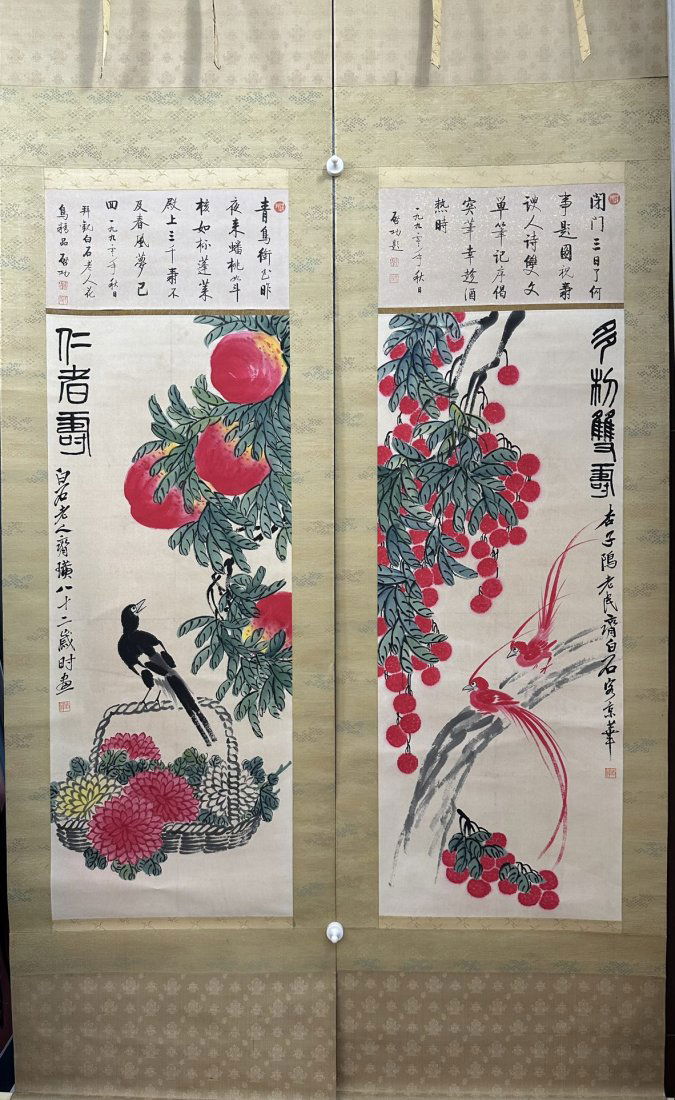 闭门三日了何
事題圖祝壽
諛人诗雙文
單笔記序倡
筆幸趁酒
熱時
一九九 年秋日
启功题
多利雙壽
杏子隝老民齊白石客京華
青鳥銜書昨
夜来蟠桃如斗
核如杯蓬莱
殿上三千壽不
及春風夢已
回 一九九 年秋日
拜觀白石老人花
鳥精品启功
仁者壽
白石老人齊璜八十二歲时画